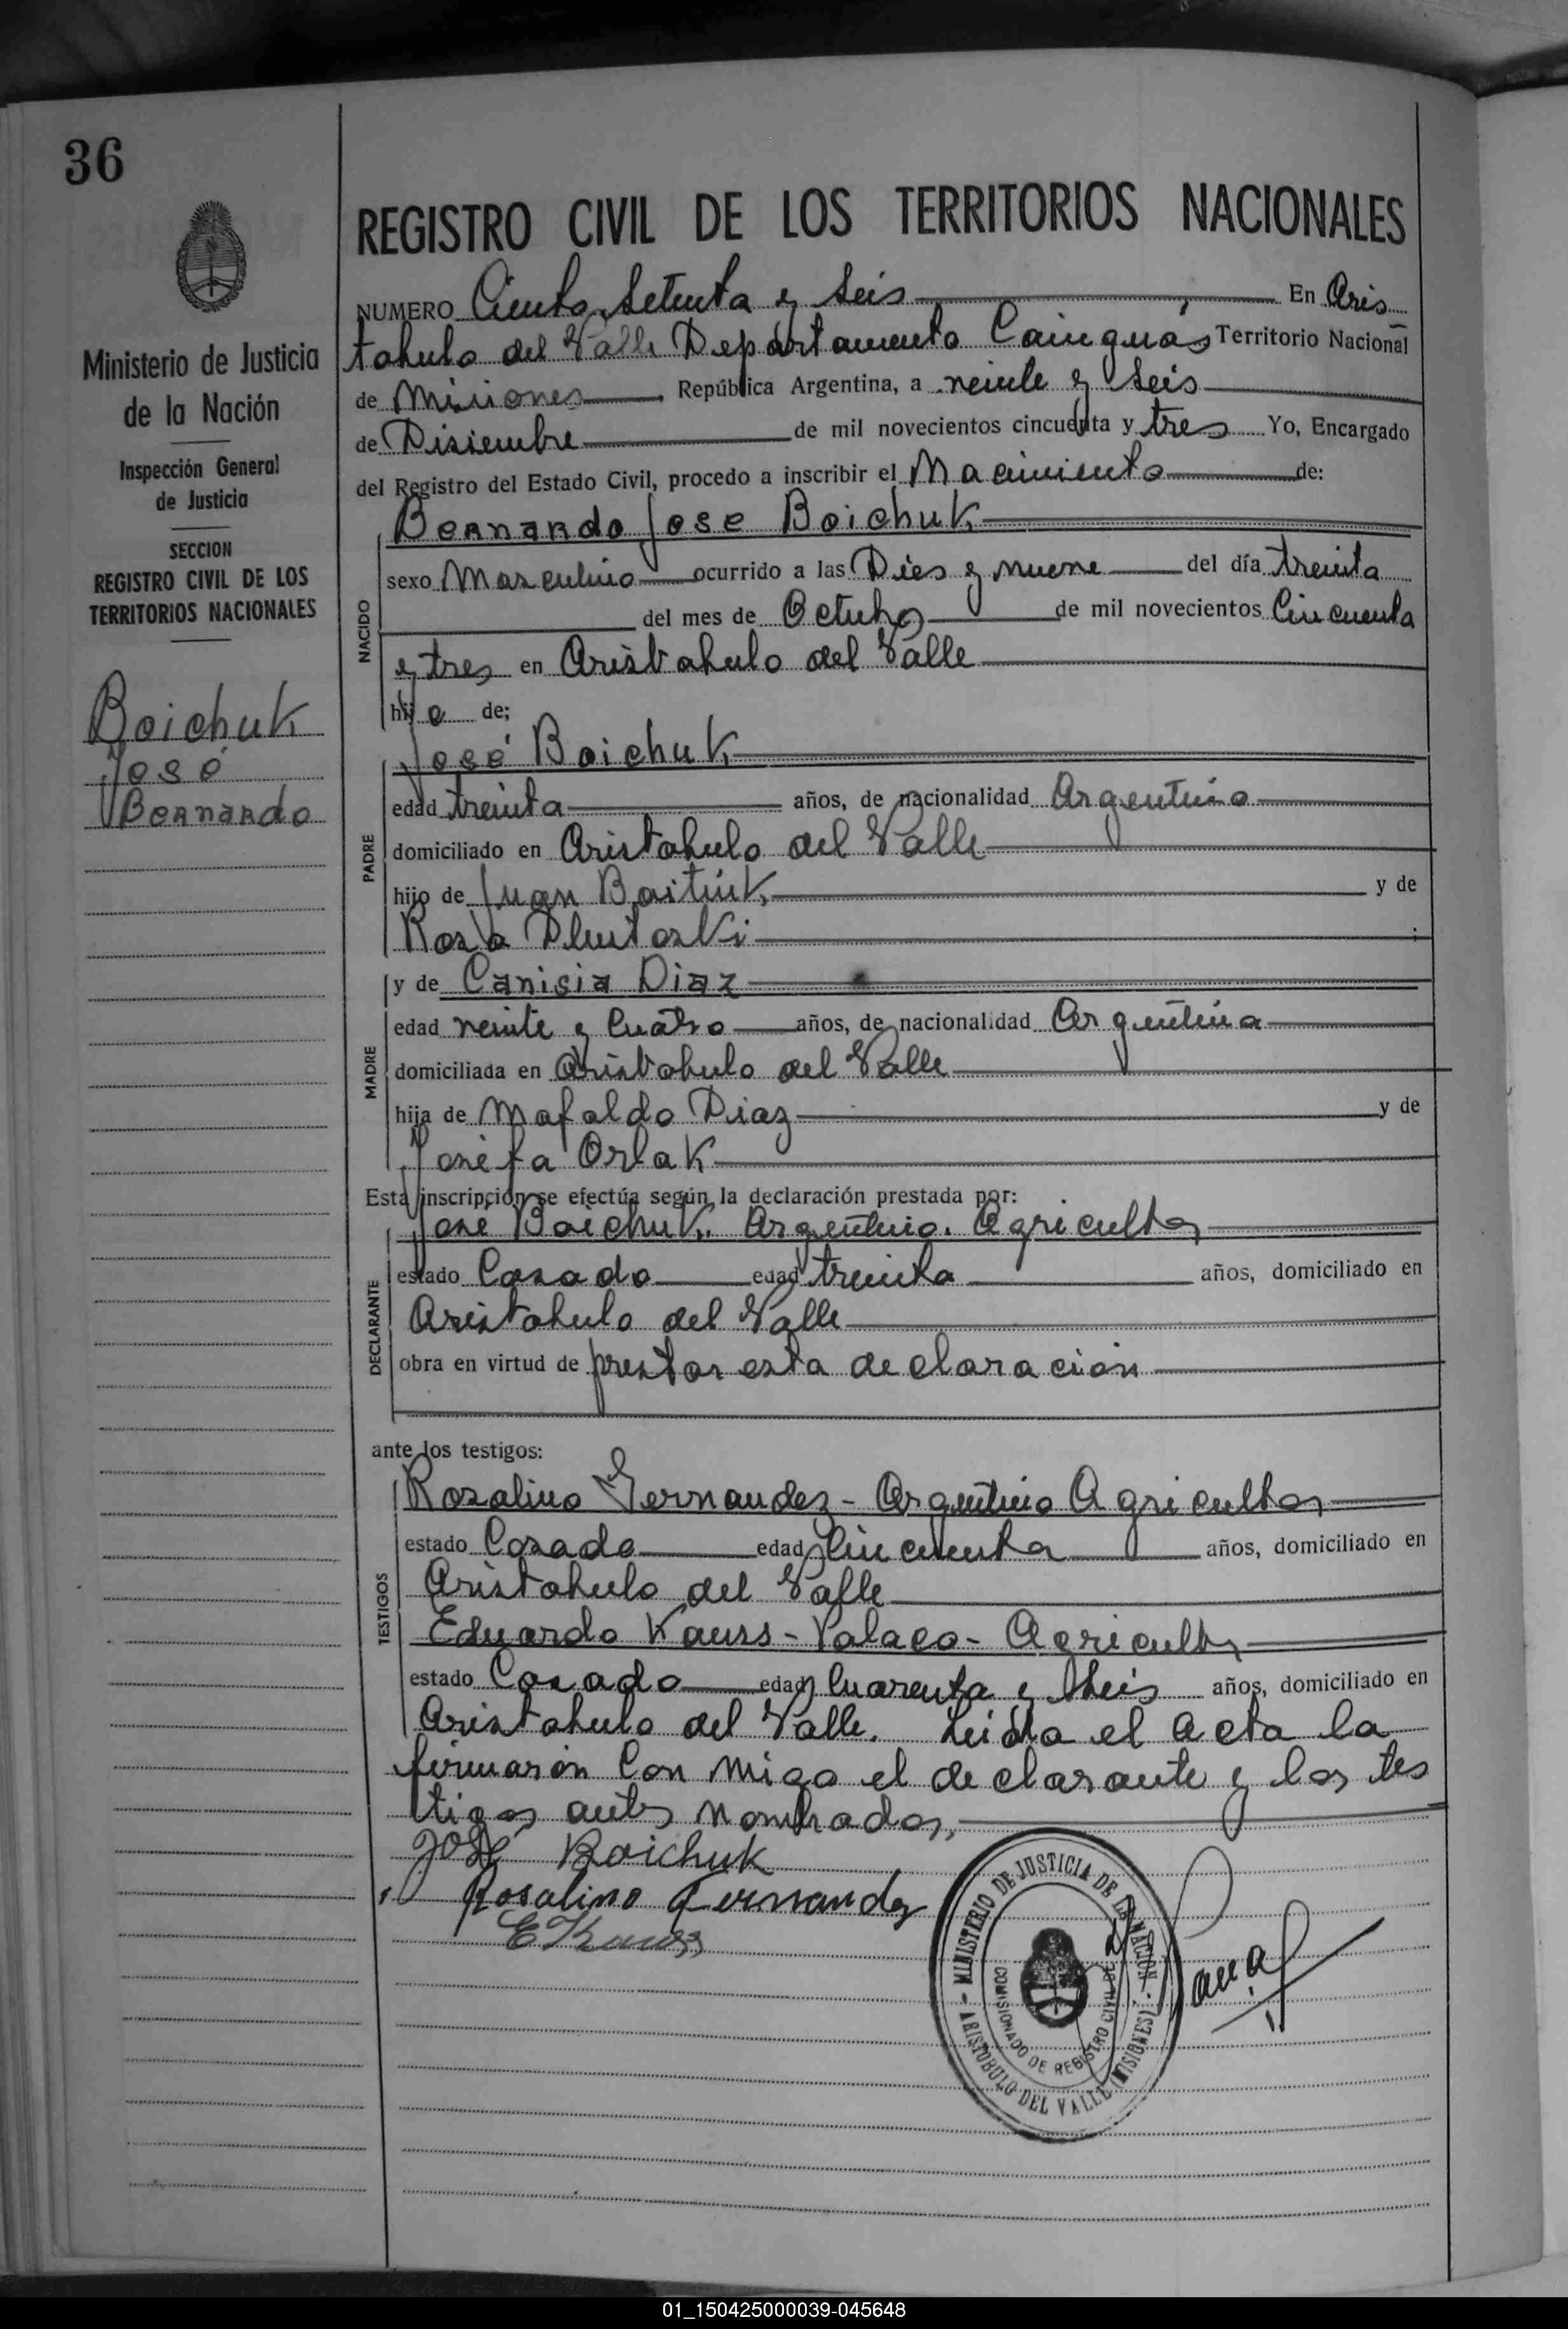 36
Ministerio de Justicia
de la Nación
Inspección General
de Justicia
SECCION
REGISTRO CIVIL DE LOS
TERRITORIOS NACIONALES
Boichuk
José
Bernardo
REGISTRO CIVIL DE LOS TERRITORIOS NACIONALES
NUMERO Ciento Setenta y Seis En Aris
tobulo del Valle Departamento Cainguás Territorio Nacional
de Misiones República Argentina, a veinte y Seis
de Disiembre de mil novecientos cincuenta y tres Yo, Encargado
del Registro del Estado Civil, procedo a inscribir el Nacimiento de:
Bernardo Jose Boichuk
NACIDO
sexo Masculino ocurrido a las Dies y nueve del día treinta
del mes de Octubre de mil novecientos Cincuenta
y tres en Aristobulo del Valle
hijo de;
José Boichuk
PADRE
edad treinta años, de nacionalidad Argentino
domiciliado en Aristobulo del Valle
hijo de Juan y de
Rosa
y de Canisia Diaz
MADRE
edad veinte y Cuatro años, de nacionalidad Argentina
domiciliada en Aristobulo del Valle
hija de Mafaldo Diaz y de
Josefa Orlak
Esta inscripción se efectúa según la declaración prestada por:
José Boichuk. Argentino. Agricultor
DECLARANTE
estado Casado edad treinta años, domiciliado en
Aristobulo del Valle
obra en virtud de prestar esta declaración
ante los testigos:
TESTIGOS
Rosalino Fernandez - Argentino Agricultor
estado Casado edad Cincuenta años, domiciliado en
Aristobulo del Valle
Eduardo Kauss - Polaco - Agricultor
estado Casado edad Cuarenta y Seis años, domiciliado en
Aristobulo del Valle. Leida el Acta la
firmarón Con migo el declarante y los tes
tigos antes nombrados,
José Boichuk
Rosalino Fernandez
E Kauss
MINISTERIO DE JUSTICIA DE LA NACION
COMISIONADO DE REGISTRO CIVIL
ARISTOBULO DEL VALLE (MISIONES)
01_150425000039-045648